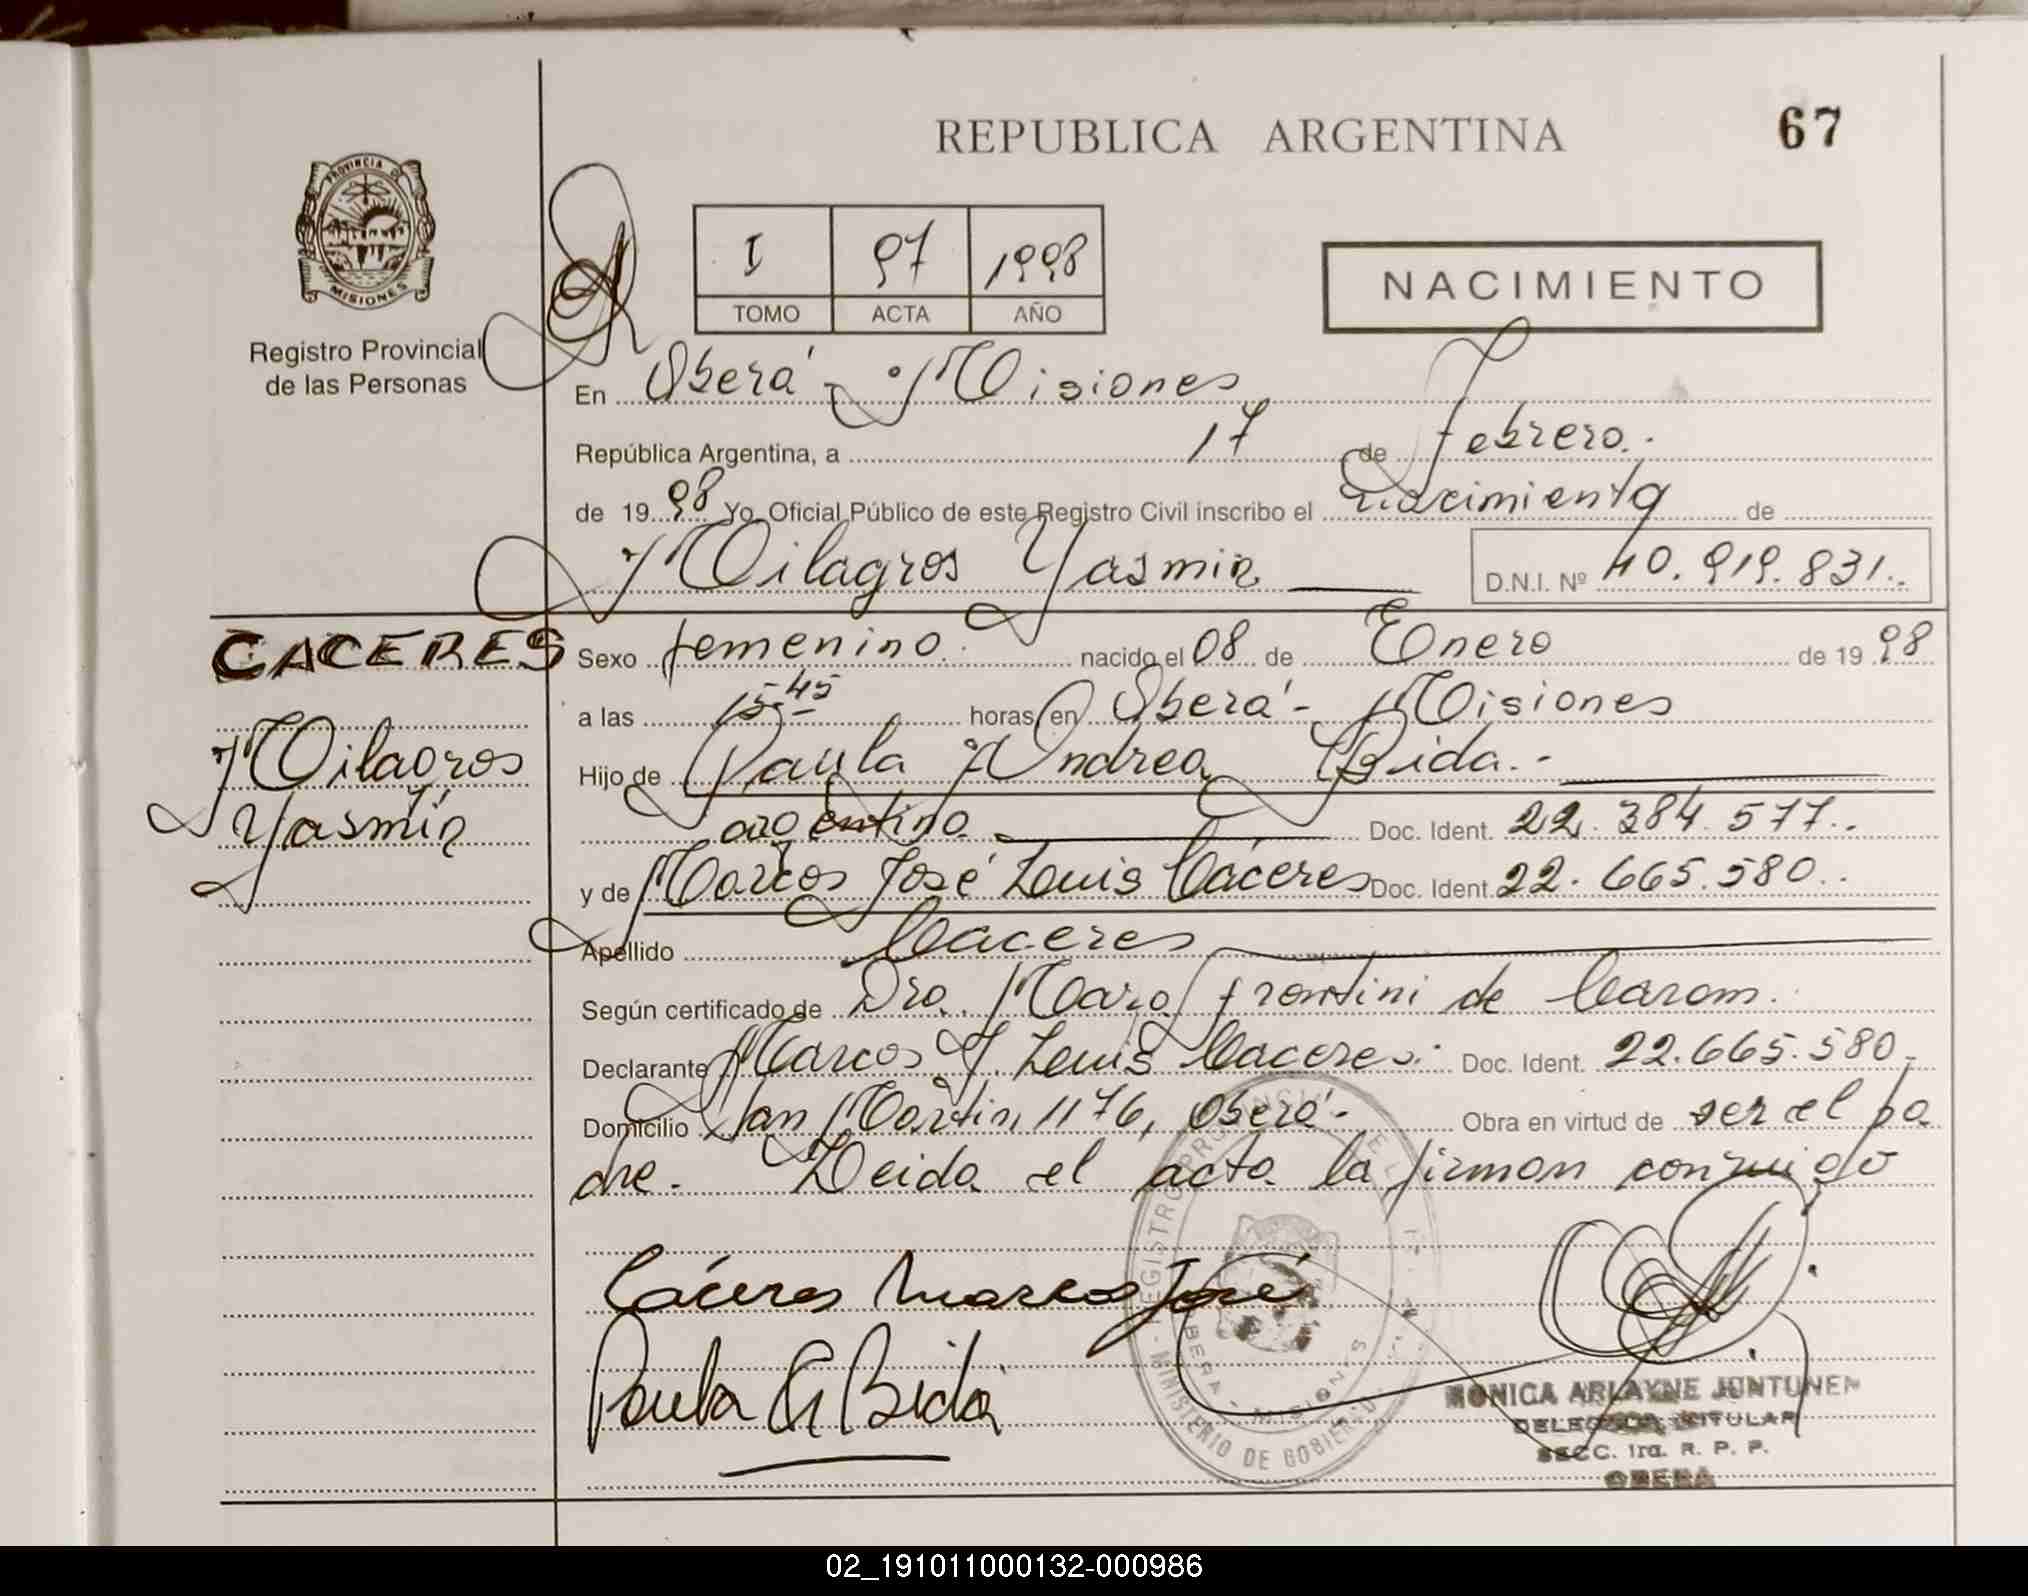 REPUBLICA ARGENTINA
67
PROVINCIA DE
MISIONES
Registro Provincial
de las Personas
I 97 1998
TOMO ACTA AÑO
NACIMIENTO
En Oberá - Misiones
República Argentina, a 17 de Febrero.
de 1998 Yo, Oficial Público de este Registro Civil inscribo el nacimiento de
Milagros Yasmin D.N.I. Nº 40.919.831..
CACERES
Milagros
Yasmin
Sexo femenino nacido el 08 de Enero de 1998
a las 15-45 horas, en Oberá - Misiones
Hijo de Paula Andrea Bida.-
argentina Doc. Ident. 22.384.577..
y de Marcos José Luis Cáceres Doc. Ident. 22.665.580..
Apellido Caceres
Según certificado de Dra. Mara Frontini de
Declarante Marcos J. Luis Caceres. Doc. Ident. 22.665.580-
Domicilio San Martin 1176, Oberá- Obra en virtud de ser el pa
dre. Leida el acta la firman conmigo
Cáceres Marcos José
Paula A Bida
REGISTRO PROVINCIAL DE LAS
OBERA - MISIONES
MINISTERIO DE GOBIERNO
MONICA ARLAYNE JUNTUNEN
DELEGADA TITULAR
SECC. 1ra. R. P. P.
OBERA
02_191011000132-000986